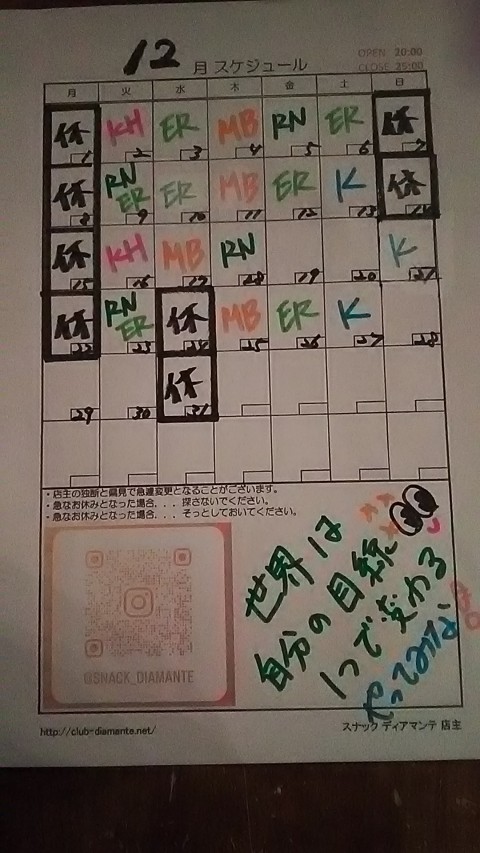 12月 スケジュール
OPEN 20:00
CLOSE 25:00
月 火 水 木 金 土 日
休 KH ER MB RN ER 休
1 2 3 4 5 6 7
休 RN ER ER MB ER K 休
8 9 10 11 12 13 14
休 KH MB RN K
15 16 17 18 19 20 21
休 RN ER 休 MB ER K
22 23 24 25 26 27 28
休
29 30 31
・店主の独断と偏見で急遽変更となることがございます。
・急なお休みとなった場合．．．探さないでください。
・急なお休みとなった場合．．．そっとしておいてください。
世界は
自分の目線
1つで変わる
やってみな
@SNACK_DIAMANTE
http://club-diamante.net/
スナック ディアマンテ 店主